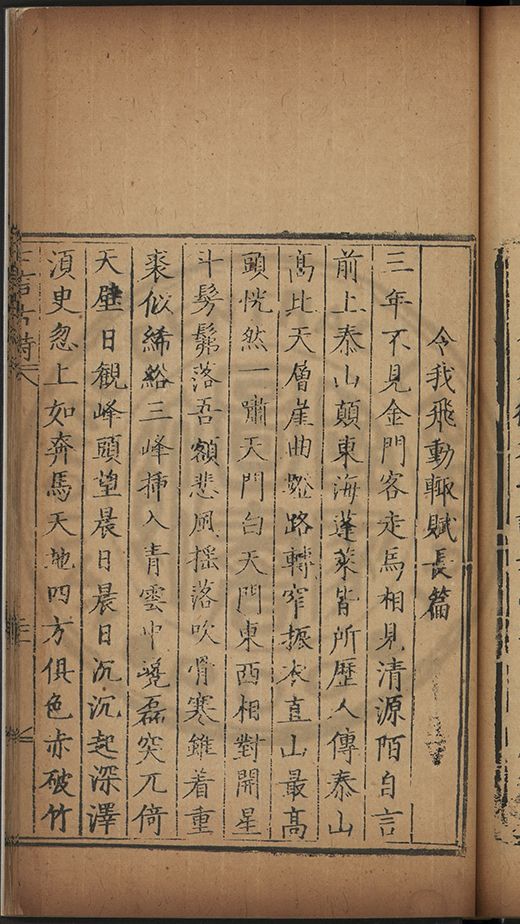 令我飛動輙賦長篇
三年不見金門客走馬相見清源陌自言
前上泰山顛東海蓬萊皆所歷人傳泰山
高比天僧崖曲磴路轉窄振衣直山最高
頭恍然一嘯天門白天門東西相對開星
斗髣髴落吾額悲風摇落吹骨寒雖着重
裘似絺綌三峰揷入青雲中磊突兀倚
天壁日觀峰頭望晨日晨日沉沉起深澤
湏史忽上如奔馬天地四方俱色赤破竹